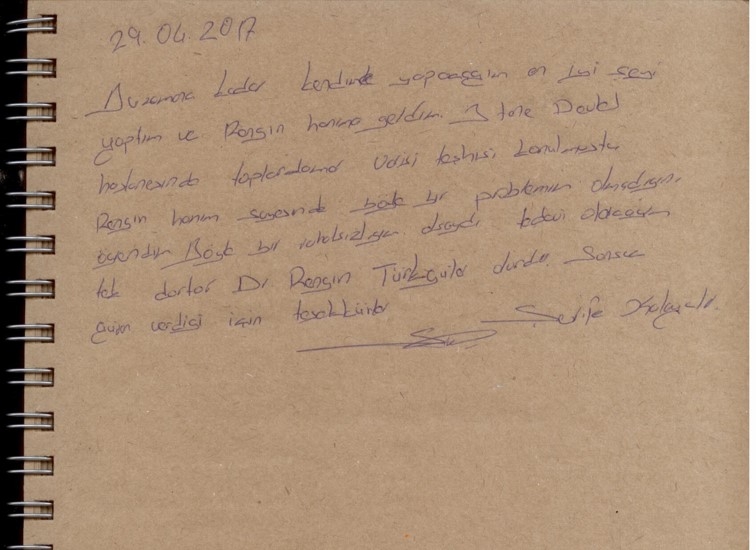 29.04.2017
kadar kendimde yapcaağım en iyi şeyi
yaptım ve Rengin hanıma geldim. 3 tane Devlet
hastanesinde toplardamar varisi teşhisi konulmuştu
Rengin hanım sayesinde böle bir problemim olmadığını
öğrendim Böyle bir rahatsızlığım olsaydı tedavi olacağım
tek doktor Dr Rengin Türkgüler Sonsuz
güven verdiği için teşekkürler
Şerife